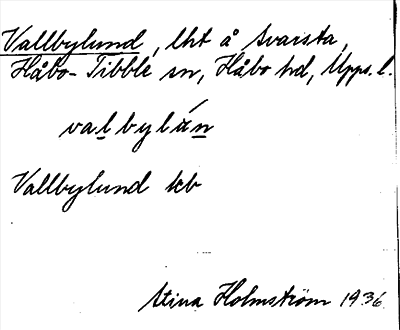 Vallbylund, lht å Svarsta,
Håbo-Tibble sn, Håbo hd, Upps. l.
valbylún
Vallbylund kb
Stina Holmström 1936